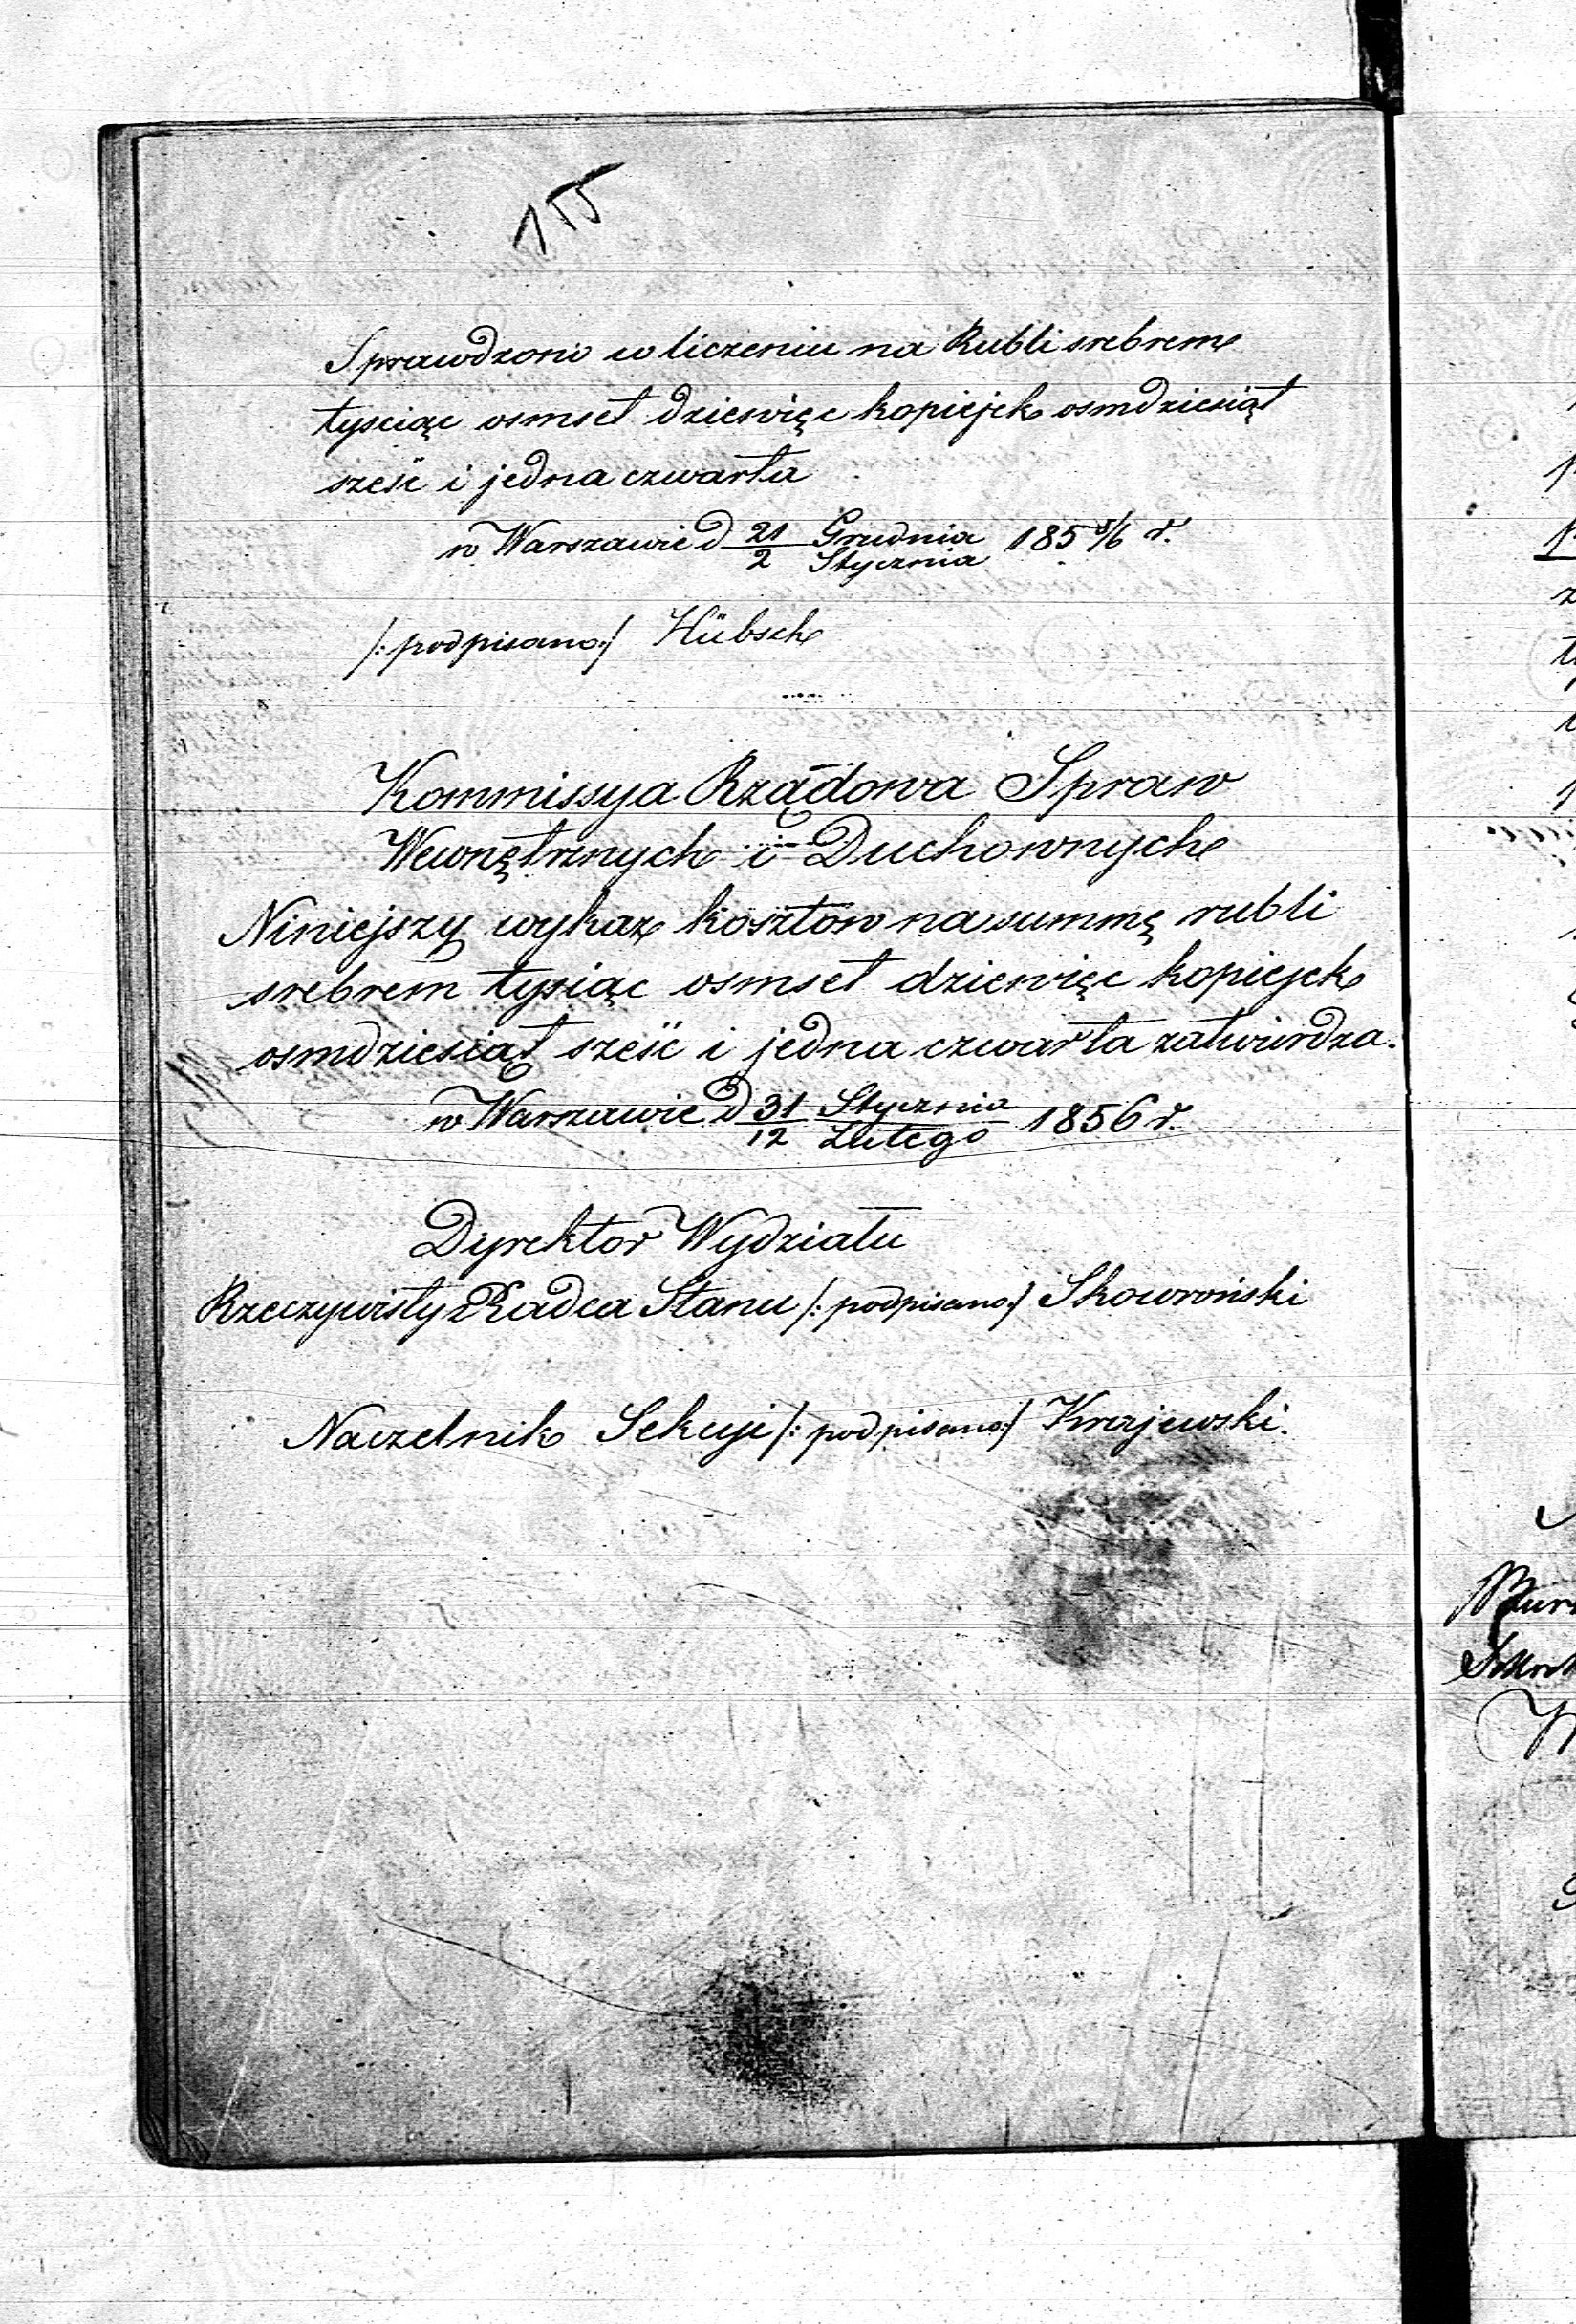 155
Sprawdzono w liczeniu na Rubli srebrem
tysciąc osmset dziewięc kopiejek osmdziesiąt
sześć i jedna czwarta
w Warszawie d 21/2 Grudnia/Stycznia 185 5/6 r.
/: podpisano :/ Hübsch
Kommissya Rządowa Spraw
Wewnętrznych i Duchownych
Niniejszy wykaz kosztów na summę rubli
srebrem tysiąc osmset dziewięc kopiejek
osmdziesiąt sześć i jedna czwarta zatwierdza.
w Warszawie d 31/12 Stycznia/Lutego 1856 r.
Dyrektor Wydziału
Rzeczywisty Radca Stanu /: podpisano :/ Skowroński
Naczelnik Sekcyi /: podpisano :/ Krajewski.